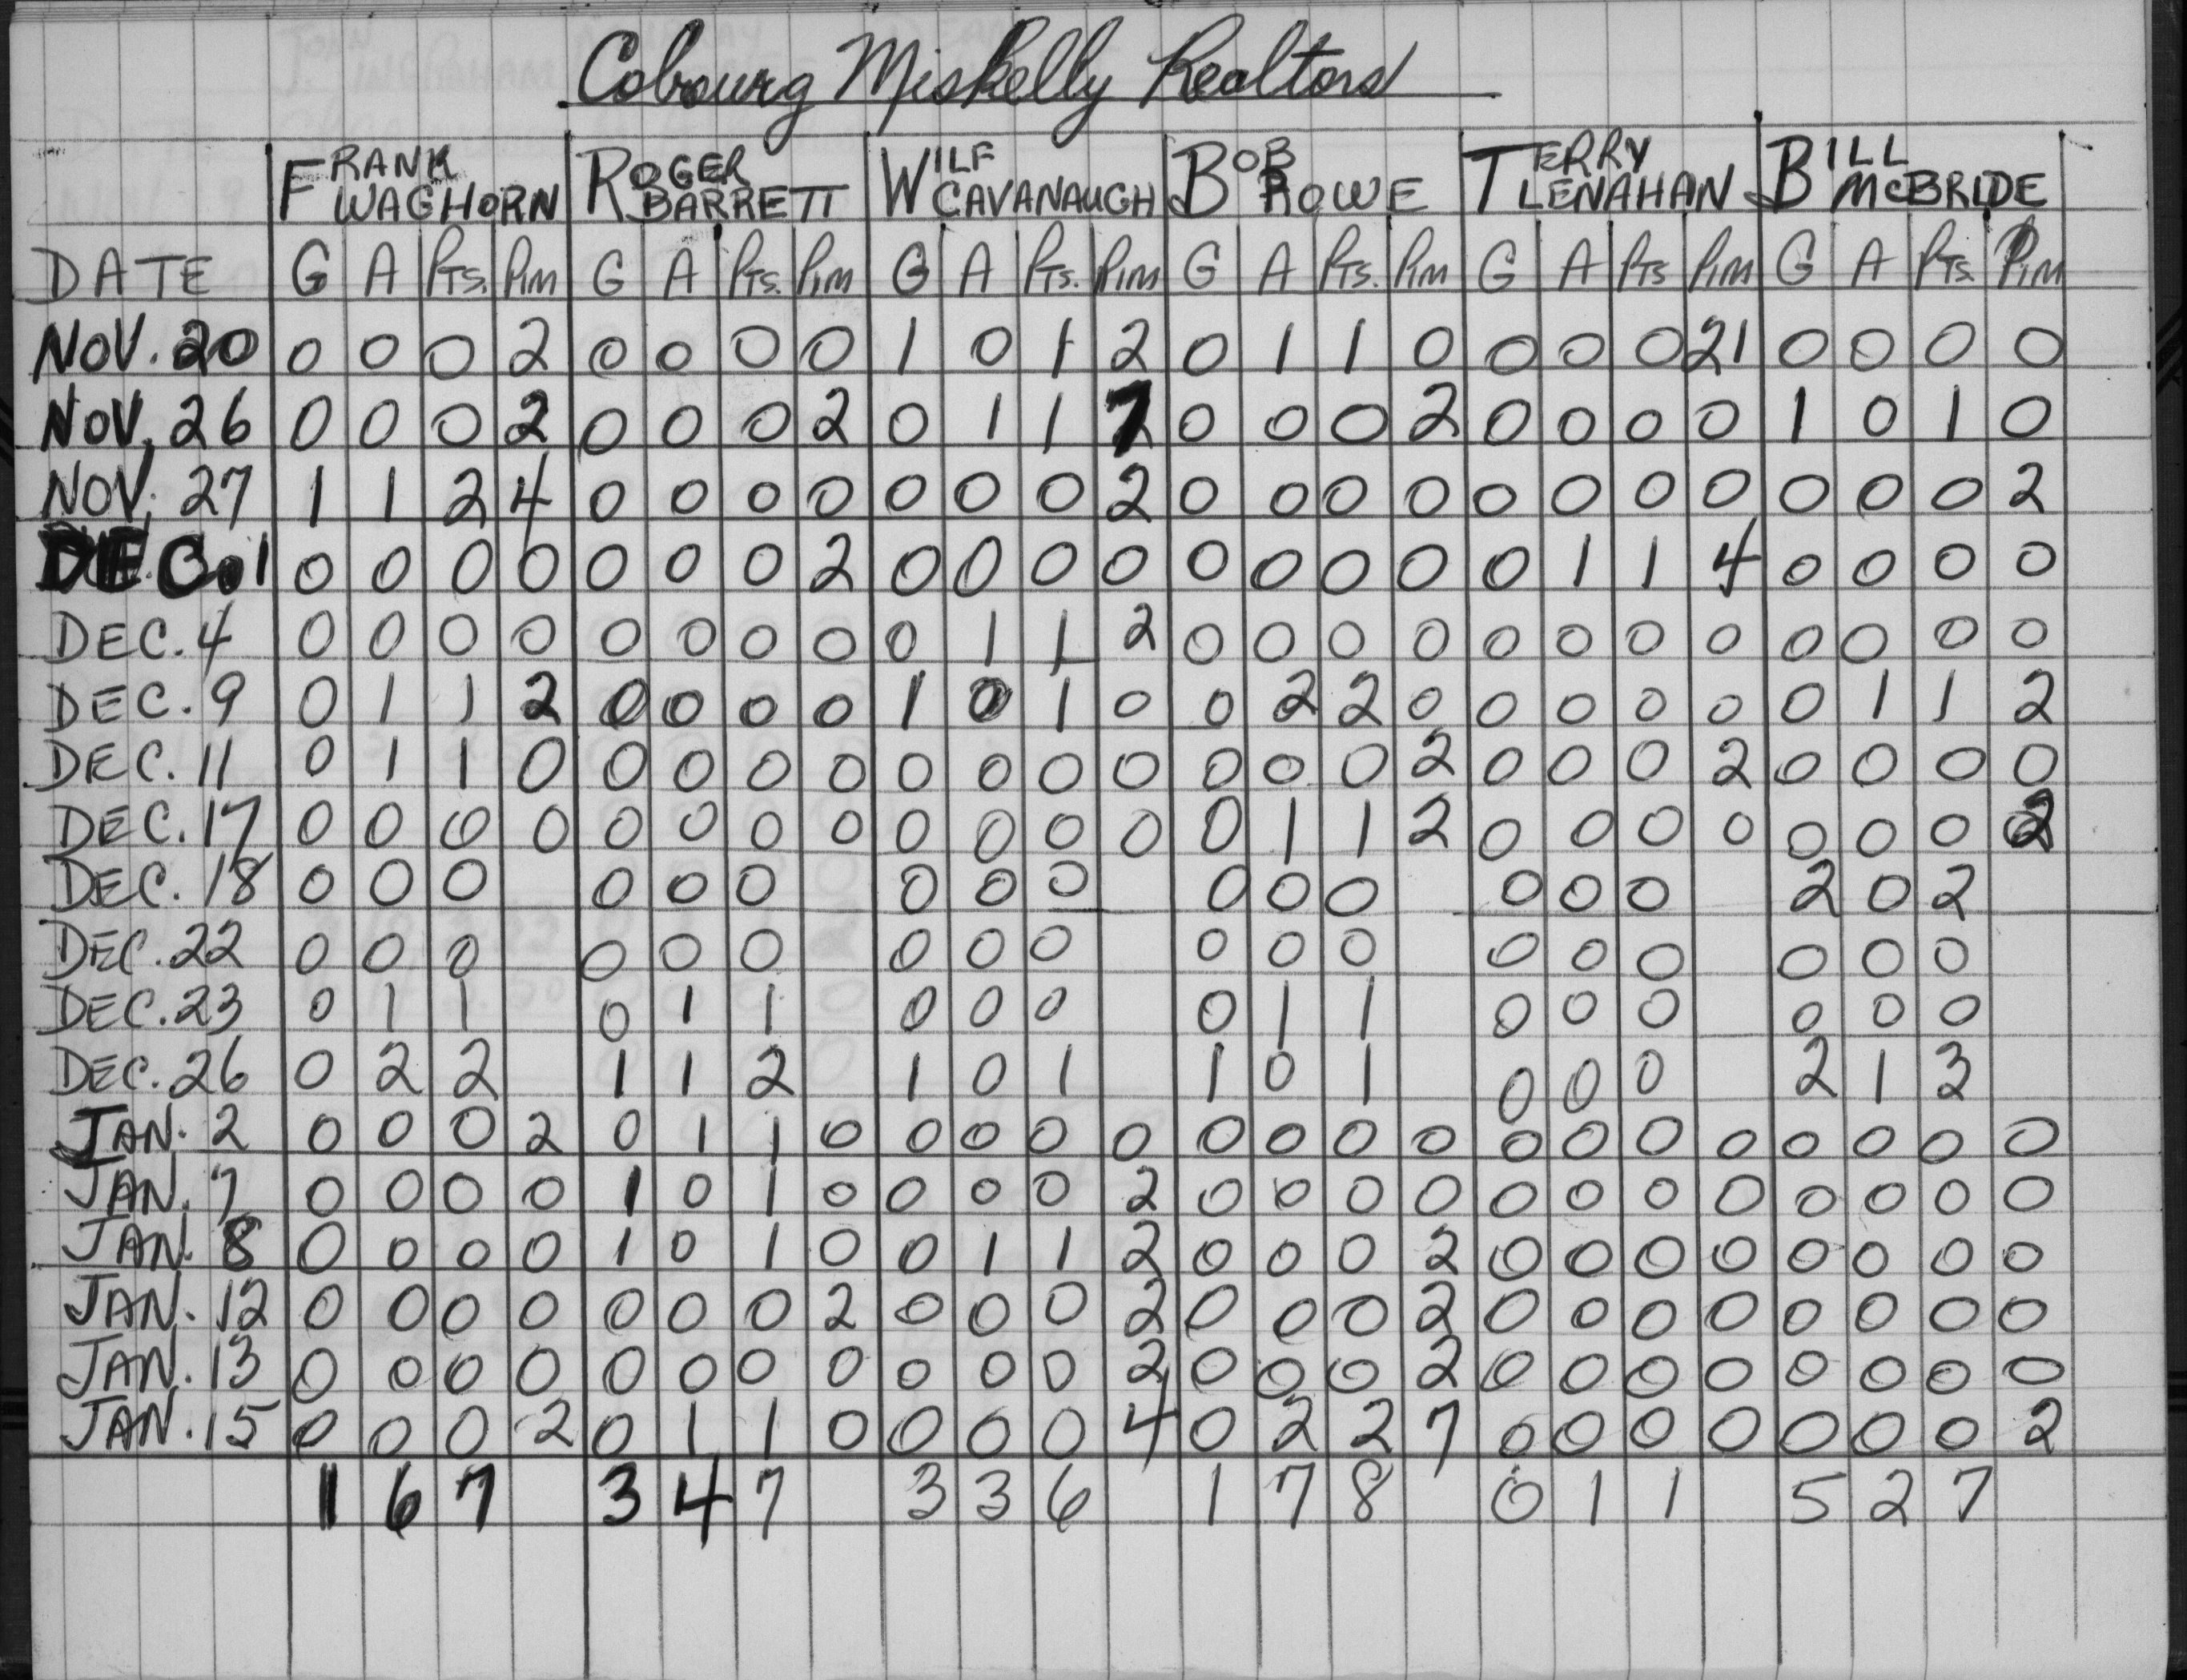 Cobourg Miskelly Realtors
FRANK WAGHORN ROGER BARRETT WILF CAVANAUGH BOB ROWE TERRY LENAHAN BILL McBRIDE
DATE G A PTS. PIM G A PTS. PIM G A PTS. PIM G A PTS. PIM G A PTS PIM G A PTS. PIM
NOV. 20 0 0 0 2 0 0 0 0 1 0 1 2 0 1 1 0 0 0 0 21 0 0 0 0
NOV. 26 0 0 0 2 0 0 0 2 0 1 1 7 0 0 0 2 0 0 0 0 1 0 1 0
NOV. 27 1 1 2 4 0 0 0 0 0 0 0 2 0 0 0 0 0 0 0 0 0 0 0 2
DEC. 1 0 0 0 0 0 0 0 2 0 0 0 0 0 0 0 0 0 1 1 4 0 0 0 0
DEC. 4 0 0 0 0 0 0 0 0 0 1 1 2 0 0 0 0 0 0 0 0 0 0 0 0
DEC. 9 0 1 1 2 0 0 0 0 1 0 1 0 0 2 2 0 0 0 0 0 0 1 1 2
DEC. 11 0 1 1 0 0 0 0 0 0 0 0 0 0 0 0 2 0 0 0 2 0 0 0 0
DEC. 17 0 0 0 0 0 0 0 0 0 0 0 0 0 1 1 2 0 0 0 0 0 0 0 2
DEC. 18 0 0 0 0 0 0 0 0 0 0 0 0 0 0 0 2 0 2
DEC. 22 0 0 0 0 0 0 0 0 0 0 0 0 0 0 0 0 0 0
DEC. 23 0 1 1 0 1 1 0 0 0 0 1 1 0 0 0 0 0 0
DEC. 26 0 2 2 1 1 2 1 0 1 1 0 1 0 0 0 2 1 3
JAN. 2 0 0 0 2 0 1 1 0 0 0 0 0 0 0 0 0 0 0 0 0 0 0 0 0
JAN. 7 0 0 0 0 1 0 1 0 0 0 0 2 0 0 0 0 0 0 0 0 0 0 0 0
JAN. 8 0 0 0 0 1 0 1 0 0 1 1 2 0 0 0 2 0 0 0 0 0 0 0 0
JAN. 12 0 0 0 0 0 0 0 2 0 0 0 2 0 0 0 2 0 0 0 0 0 0 0 0
JAN. 13 0 0 0 0 0 0 0 0 0 0 0 2 0 0 0 2 0 0 0 0 0 0 0 0
JAN. 15 0 0 0 2 0 1 1 0 0 0 0 4 0 2 2 7 0 0 0 0 0 0 0 2
1 6 7 3 4 7 3 3 6 1 7 8 0 1 1 5 2 7